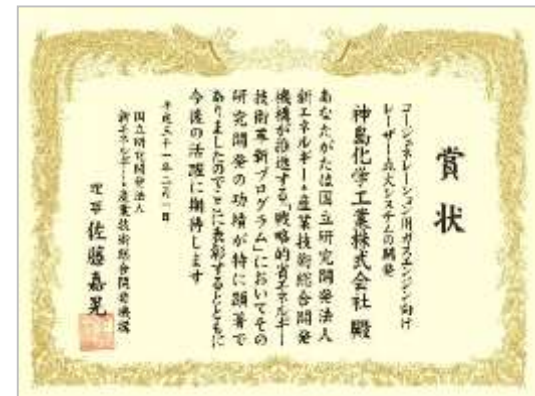 賞状
コージェネレーション用ガスエンジン向け
レーザー点火システムの開発
神島化学工業株式会社 殿
あなたがたは国立研究開発法人
新エネルギー・産業技術総合開発
機構が推進する「戦略的省エネルギー
技術革新プログラム」においてその
研究開発の功績が特に顕著で
ありましたのでここに表彰するとともに
今後の活躍に期待します
平成三十一年二月一日
国立研究開発法人
新エネルギー・産業技術総合開発機構
理事 佐藤嘉晃